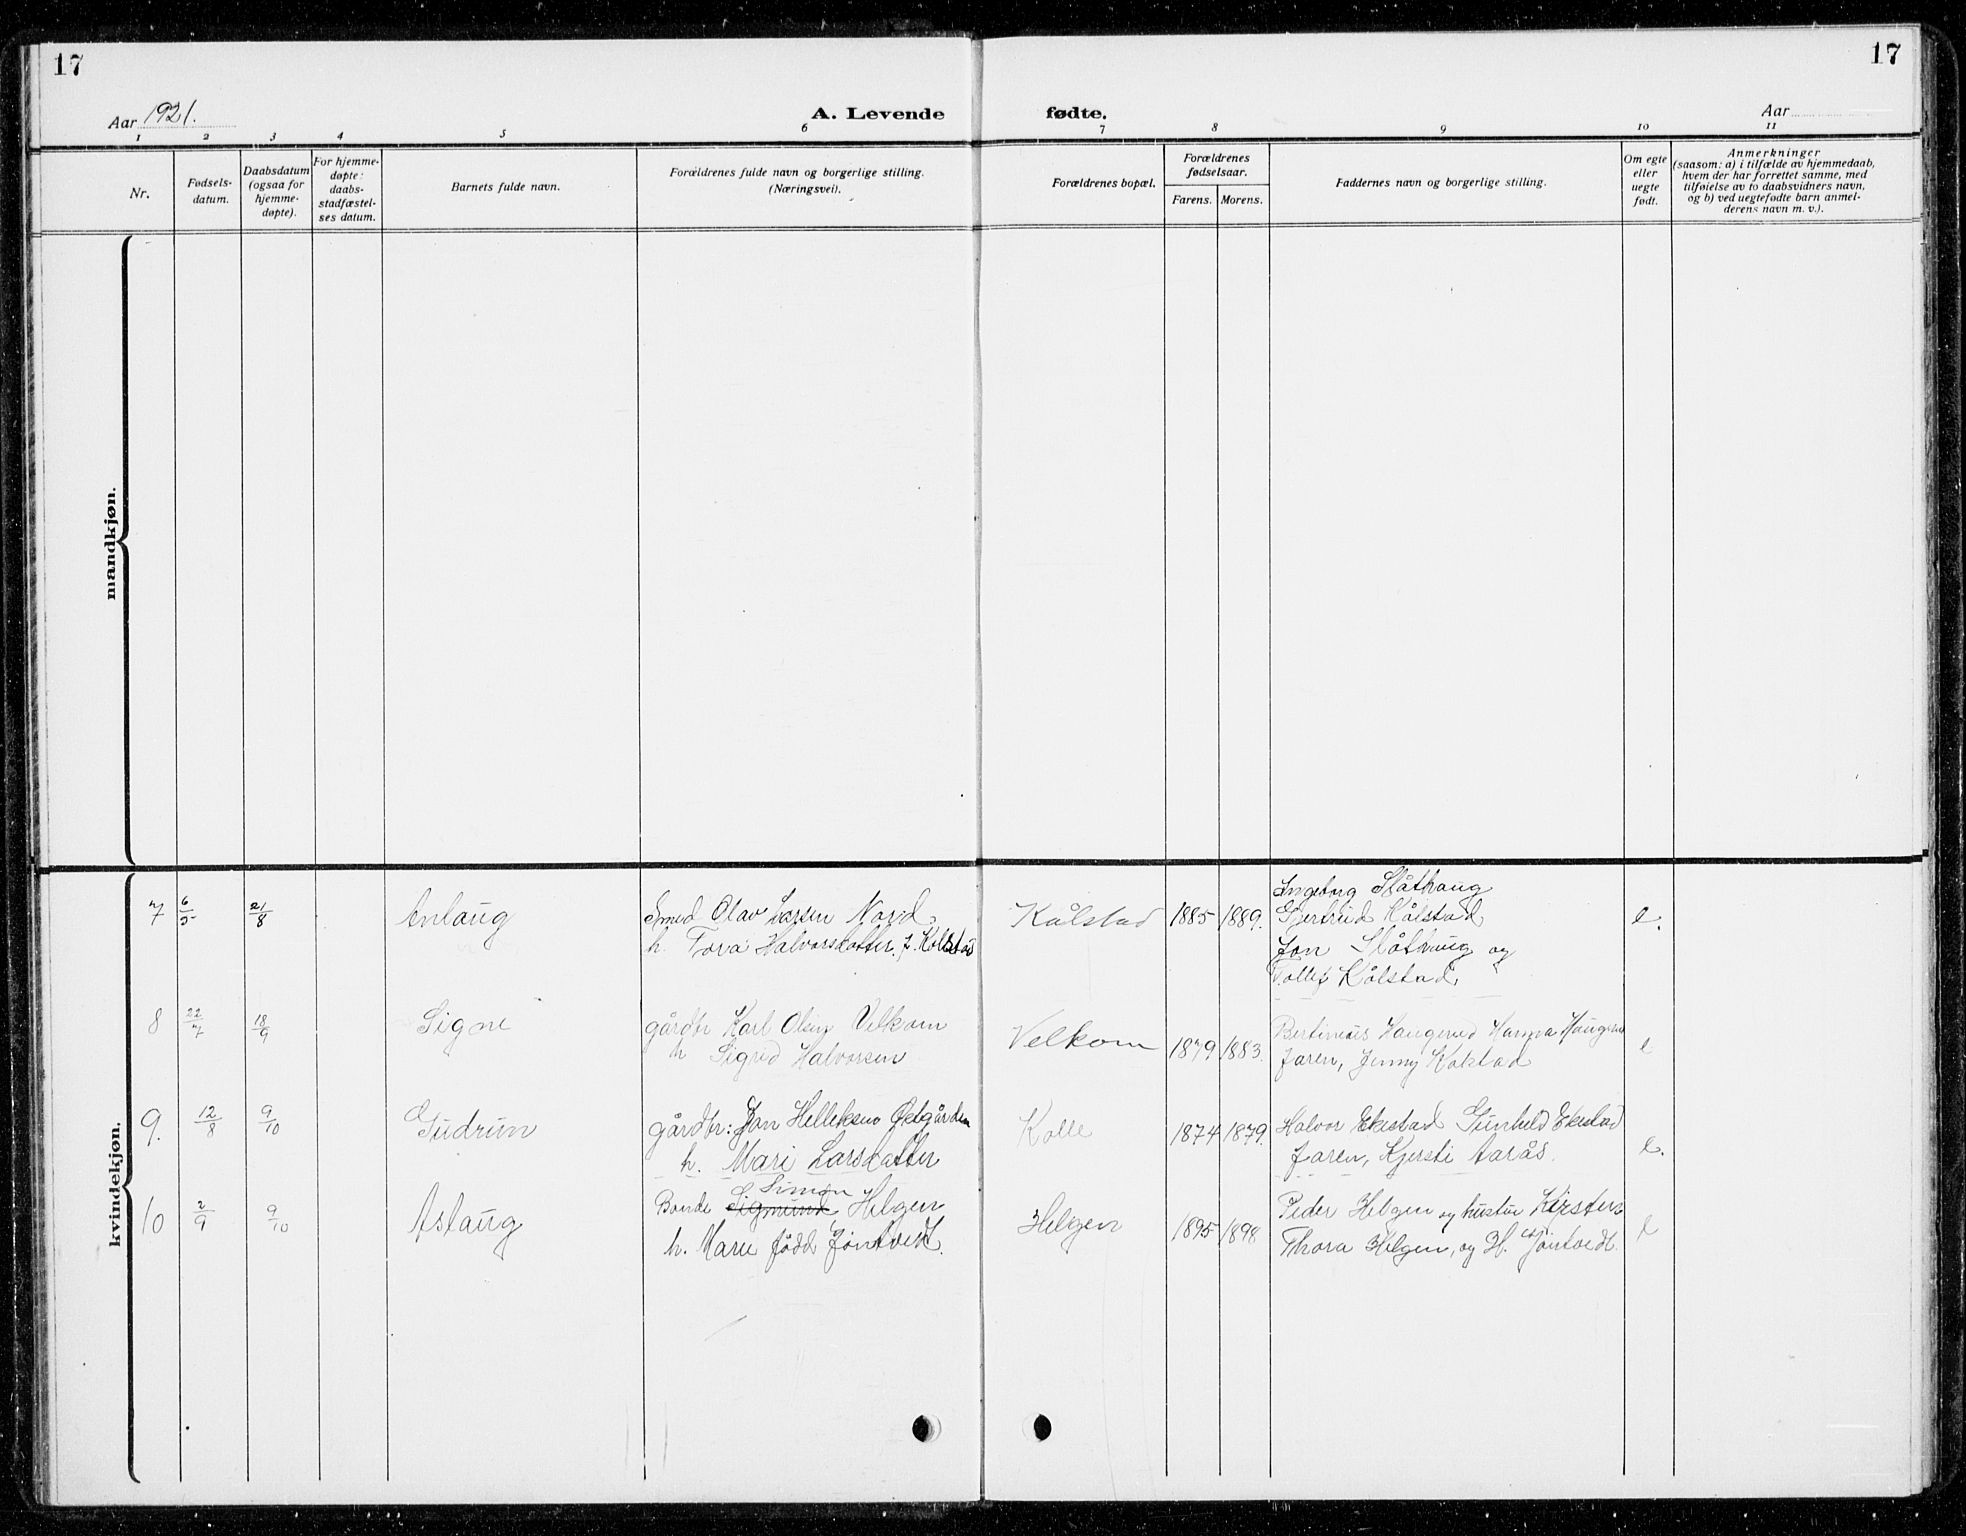 17
17
Aar 1921.
A. Levende
fødte.
Aar
1 2 3 4 5 6 7 8 9 10 11
Nr.
Fødsels-
datum.
Daabsdatum
(ogsaa for
hjemme-
døpte).
For hjemme-
døpte:
daabs-
stadfæstel-
ses datum.
Barnets fulde navn.
Forældrenes fulde navn og borgerlige stilling.
(Næringsvei).
Forældrenes bopæl.
Forældrenes
fødselsaar.
Farens. Morens.
Faddernes navn og borgerlige stilling.
Om egte
eller
uegte
født.
Anmerkninger
(saasom: a) i tilfælde av hjemmedaab,
hvem der har forrettet samme, med
tilføielse av to daabsvidners navn,
og b) ved uegtefødte barn anmel-
derens navn m. v.).
mandkjøn.
kvindekjøn.
7 6/5 21/8 Anlaug
Smed Olav Larsen Nord
h. Tora Halvorsdatter f. Kolstad
Kålstad 1885 1889.
Ingeborg Slåthaug
Gjertrud Kålstad
Jon Slåthaug og
Tollef Kålstad.
e.
8 22/7 18/9 Signe
gårdbr Karl Olsen Velkom
h Sigrid Halvorsen
Velkom 1879 1883.
Bertineus Haugerud Hanna Haugerud
faren, Jenny Kolstad
e
9. 12/8 9/10 Gudrun
gårdbr: Jon Helleksen Østgården
h. Mari Larsdatter
Kolle 1874 1879.
Halvor Ekestad Gunhild Ekestad
faren, Kjersti Aarås.
e.
10 2/9 9/10 Aslaug
Simon
Bonde Sigmund Helgen
h. Marie född Jöntvedt.
Helgen 1895 1898
Peder Helgen og hustru Kirsten
Thora Helgen, og H. Jöntvedt.
e